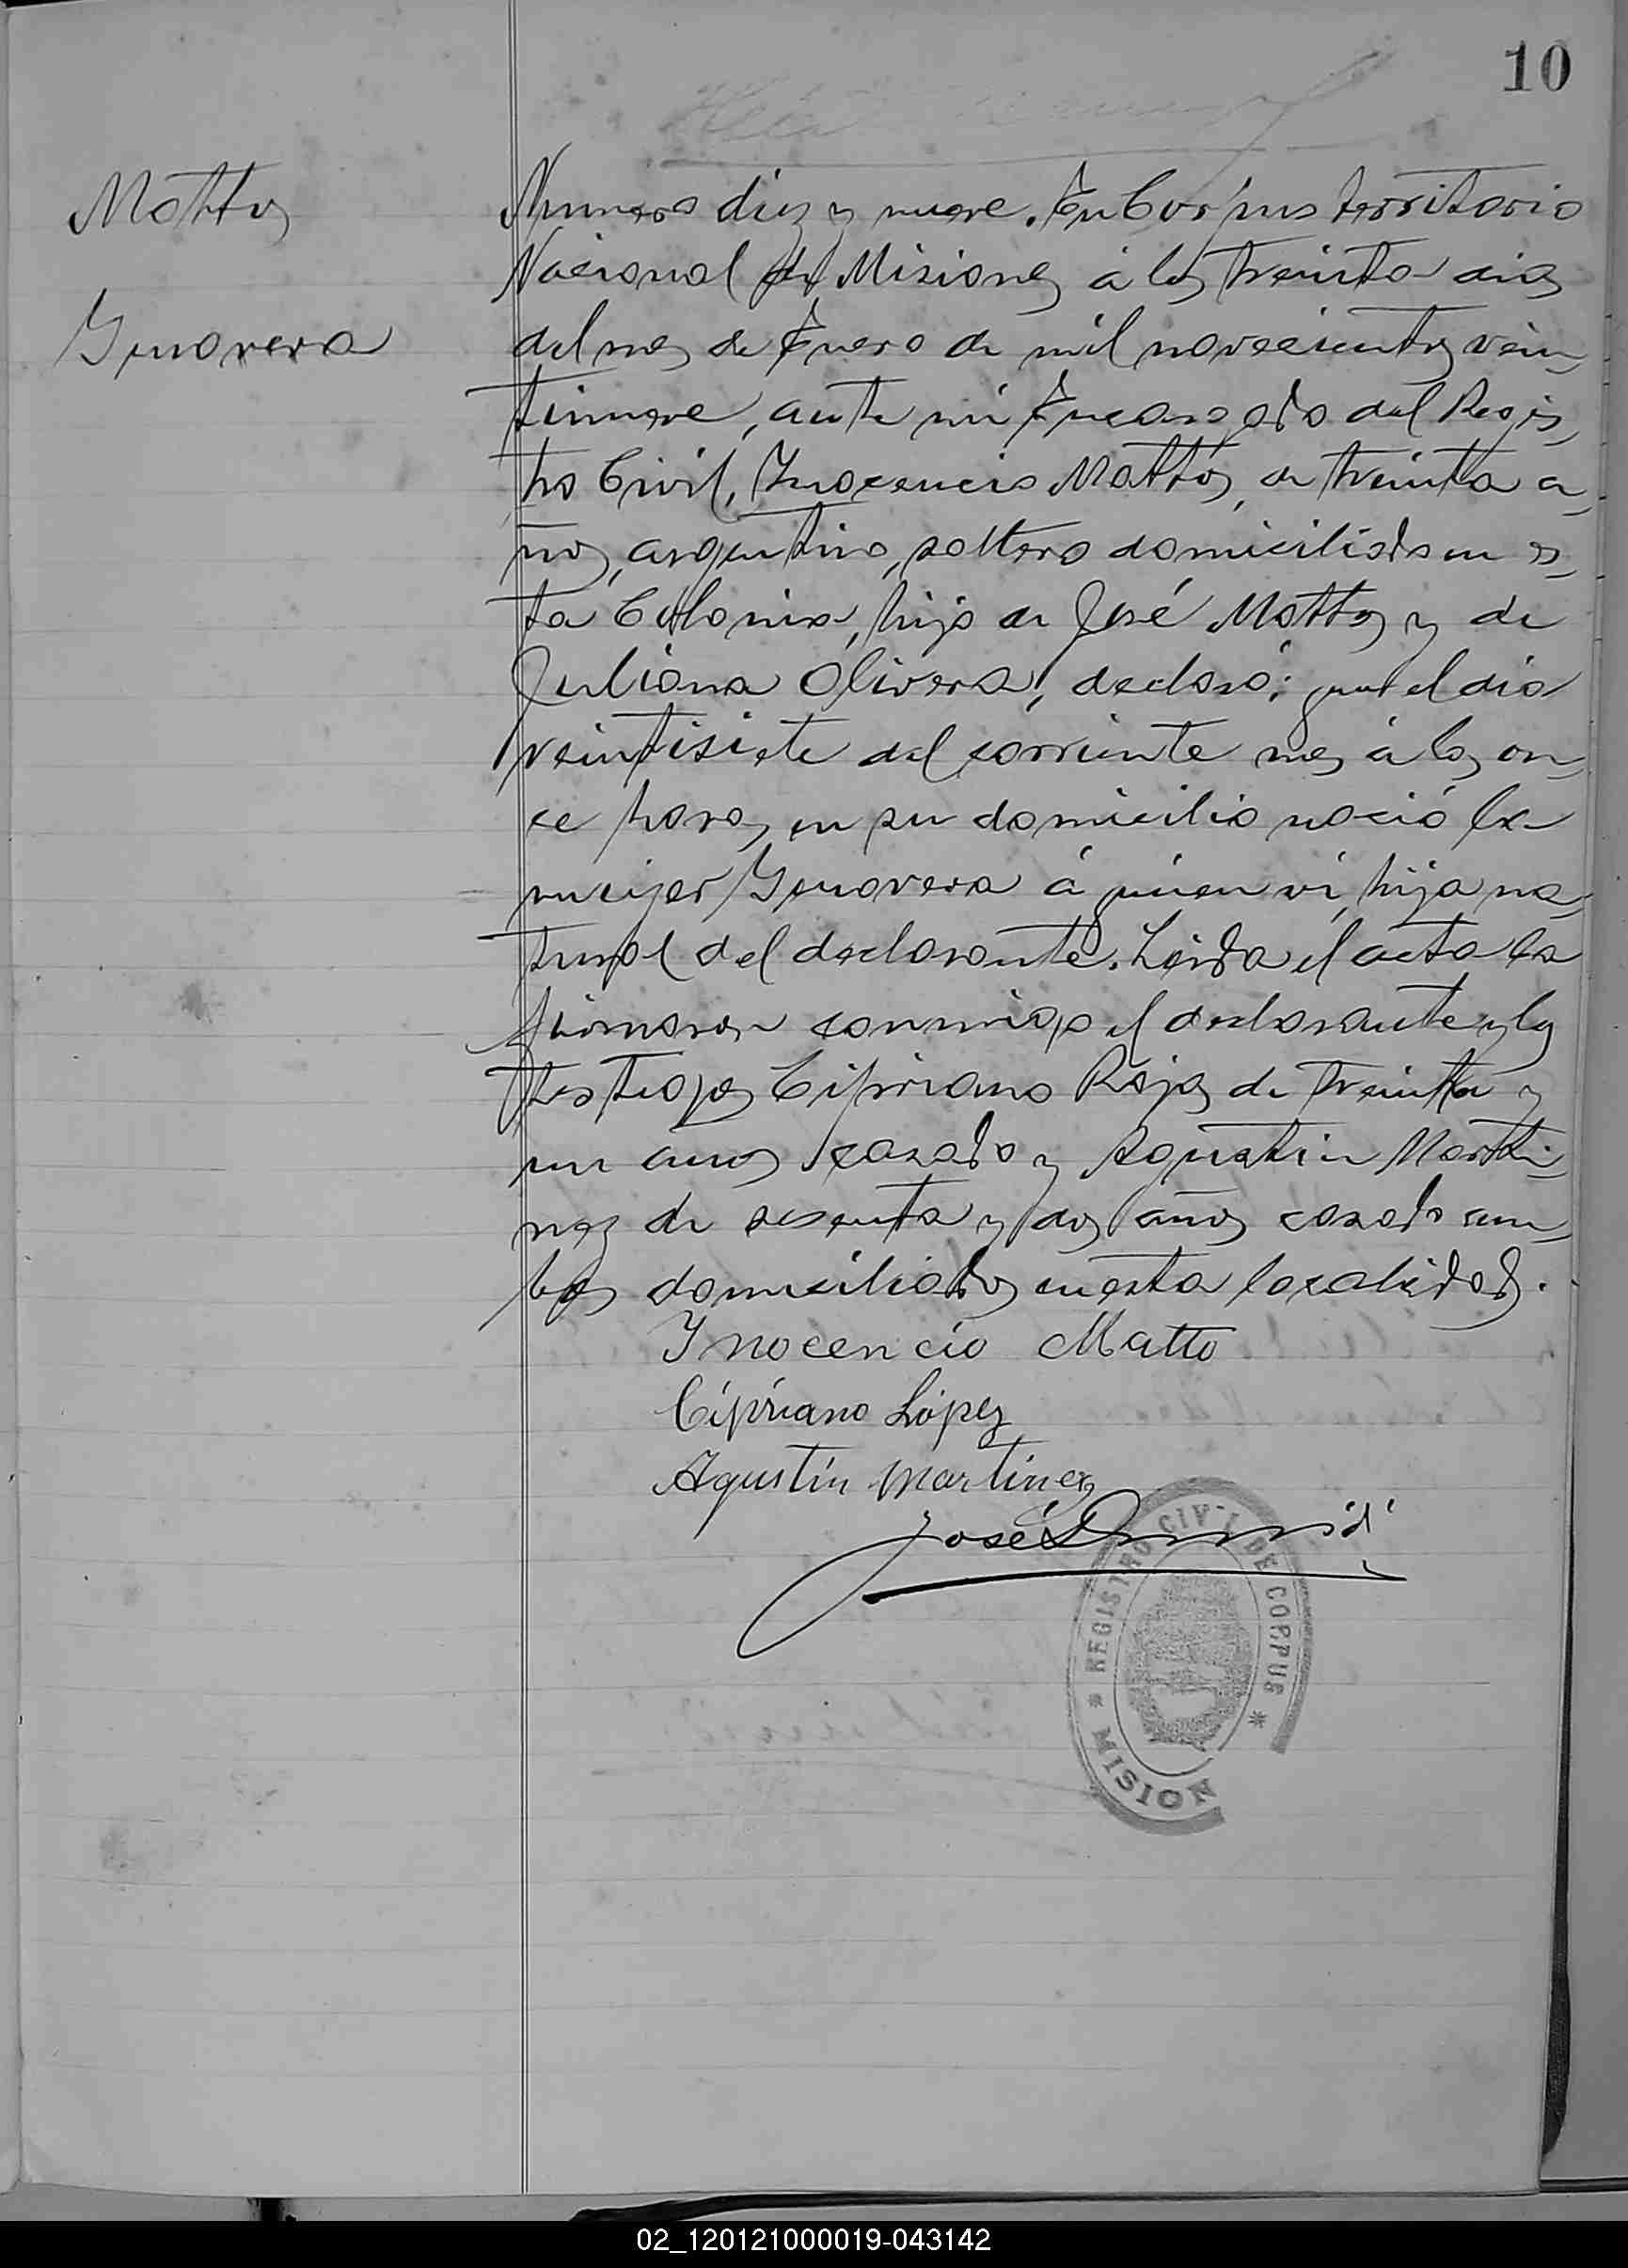 10
Mattos
Genoveva
Numero diez y nueve. En Corpus territorio
Nacional de Misiones á los treinta dias
del mes de Enero de mil novecientos vein-
tinueve, ante mi Encargado del Regis-
tro Civil, Inocencio Mattos, de treinta a-
ños, argentino, soltero domiciliado en es-
ta Colonia, hijo de José Mattos y de
Juliana Olivera, declaró: que el dia
veintisiete del corriente mes á las on-
ce horas, en su domicilio nació la
mujer Genoveva á quien vi, hija na-
tural del declarante. Leida el acta la
firmaron conmigo el declarante y los
testigos Cipriano Rojas de treinta y
un años casado y Agustin Marti-
nez de sesenta y dos años casado am-
bos domiciliados en esta localidad.
Inocencio Matto
Cipriano López
Agustín Martinez
José
REGISTRO CIVIL DE CORPUS
MISION
02_120121000019-043142